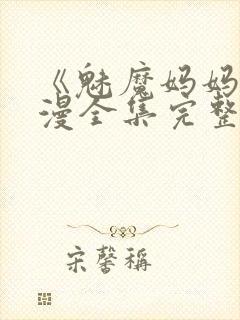 《魅魔妈妈
漫全集完整
宋馨稱